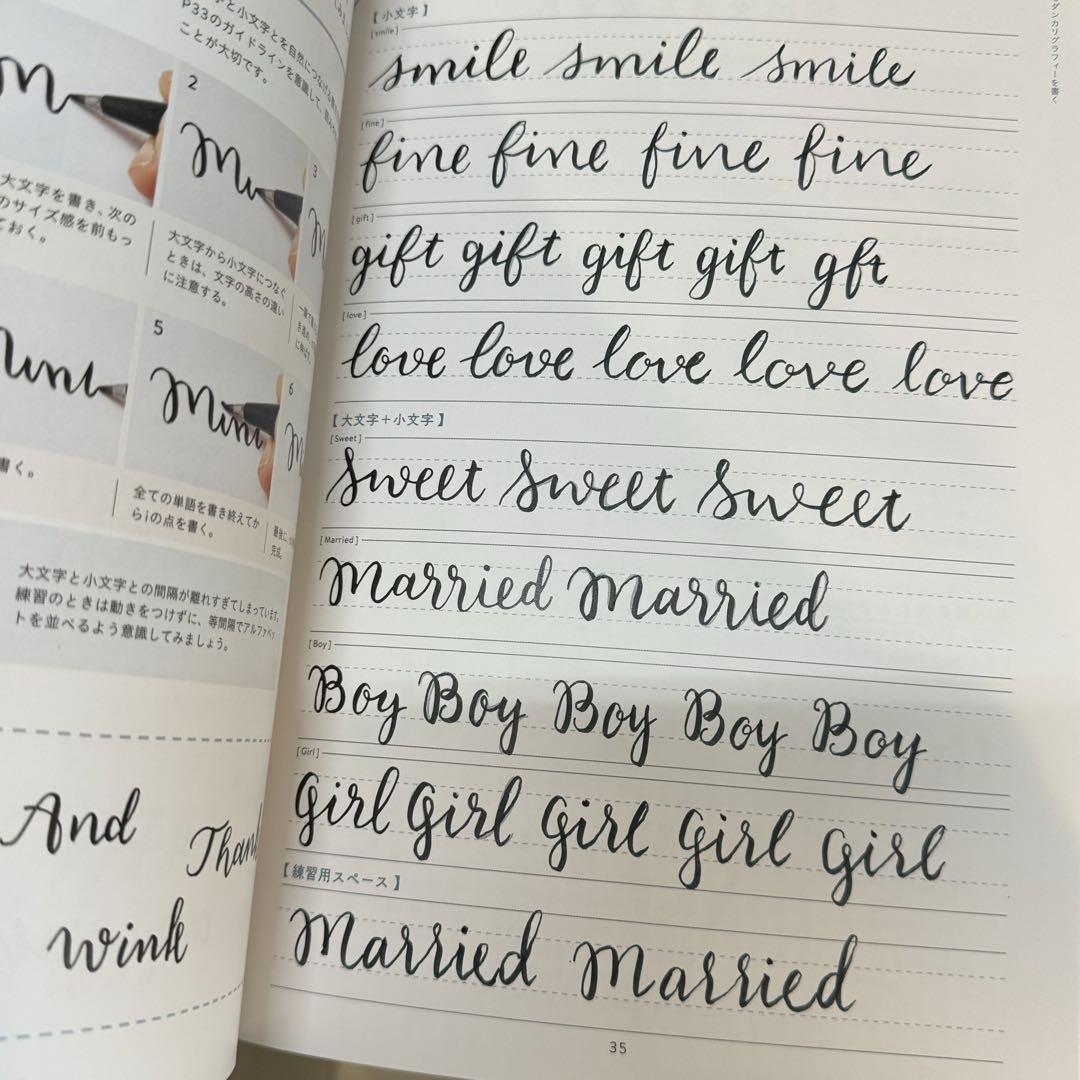 P33のガイドラインを意識して、
ことが大切です。
m
2
Mi
3
大文字を書き、次の
のサイズ感を前もっ
ておく。
大文字から小文字につなぐ
ときは、文字の高さの違い
に注意する。
5
Mini
6
書く。
全ての単語を書き終えてか
らiの点を書く。
完成。
大文字と小文字との間隔が離れすぎてしまっています。
練習のときは動きをつけずに、等間隔でアルファベッ
トを並べるよう意識してみましょう。
And
Thank
wink
【小文字】
[smile]
smile smile smile
[fine]
fine fine fine fine
[gift]
gift gift gift gift gft
[love]
love love love love love
【大文字+小文字】
[Sweet]
Sweet Sweet Sweet
[Married]
Married Married
[Boy]
Boy Boy Boy Boy Boy
[Girl]
Girl Girl Girl Girl Girl
【練習用スペース】
Married Married
35
ダンカリグラフィーを書く